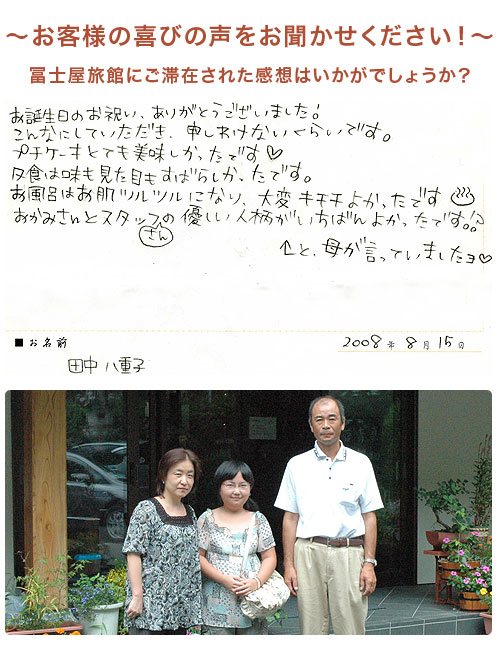 ～お客様の喜びの声をお聞かせください！～
冨士屋旅館にご滞在された感想はいかがでしょうか？
お誕生日のお祝い、ありがとうございました！
こんなにしていただき、申しわけないくらいです。
プチケーキとても美味しかったです♡
夕食は味も見た目もすばらしかったです。
お風呂はお肌ツルツルになり、大変キモチよかったです♨
おかみさんとスタッフの優しい人柄がいちばんよかったです!!
さん
↑と、母が言っていましたヨ♡
■お名前
2008年8月15日
田中八重子